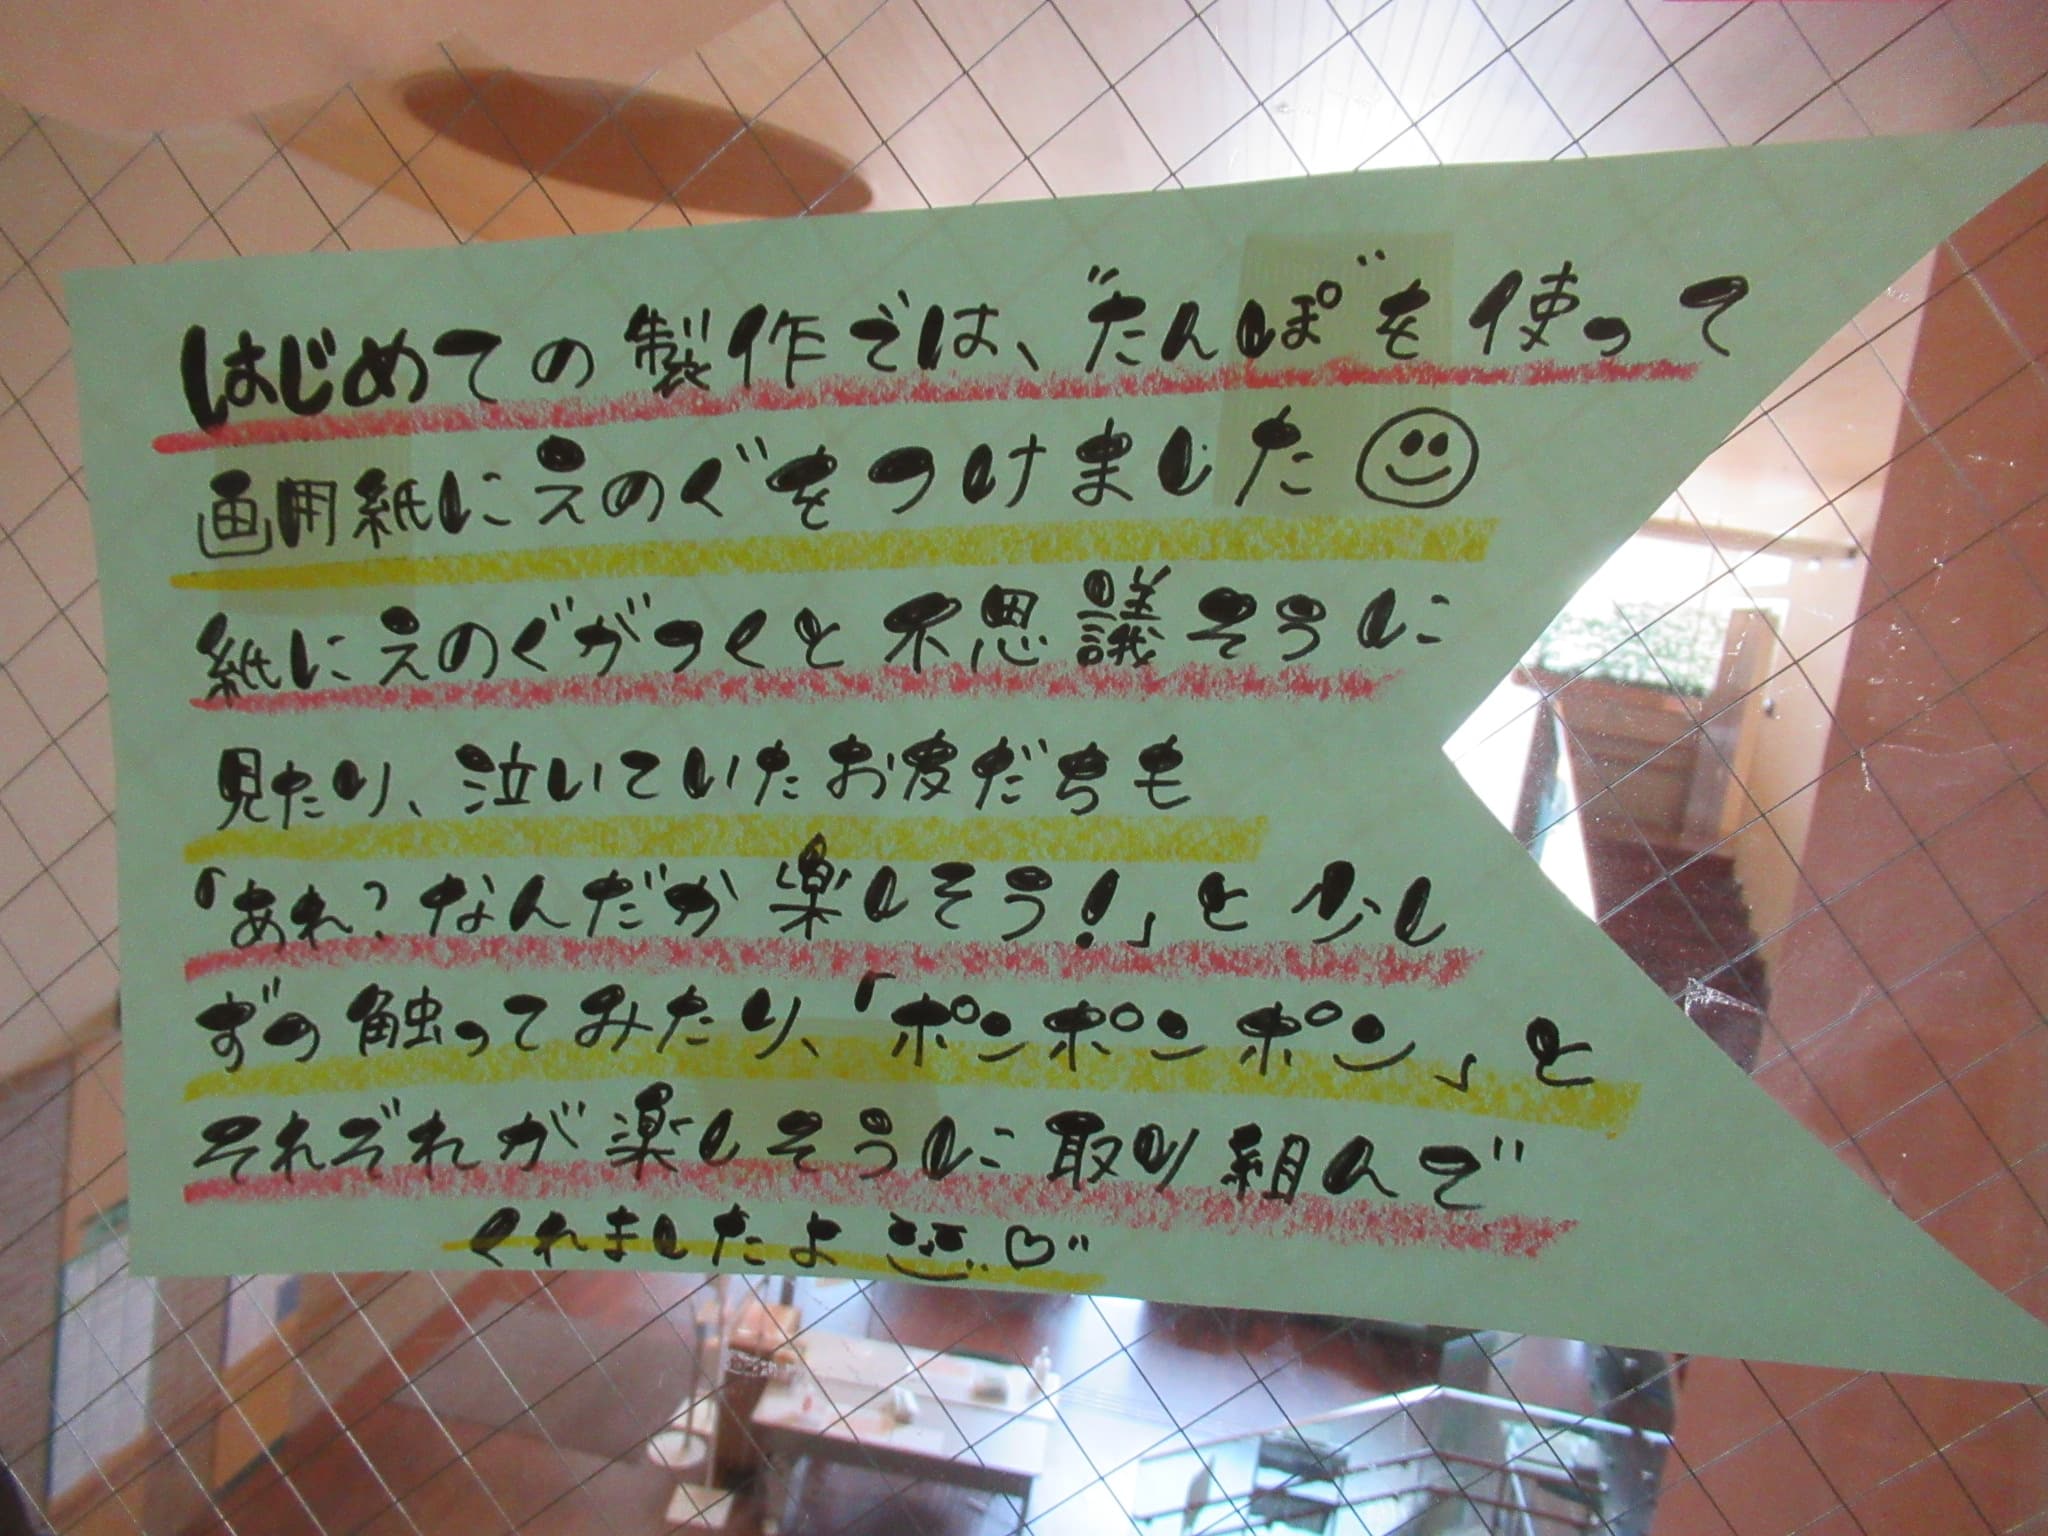 はじめての製作では、"たんぽ"を使って
画用紙にえのぐをつけました
紙にえのぐがつくと不思議そうに
見たり、泣いていたお友だちも
「あれ?なんだか楽しそう!」と少し
ずつ触ってみたり、「ポンポンポン」と
それぞれが楽しそうに取り組んで
くれましたよ